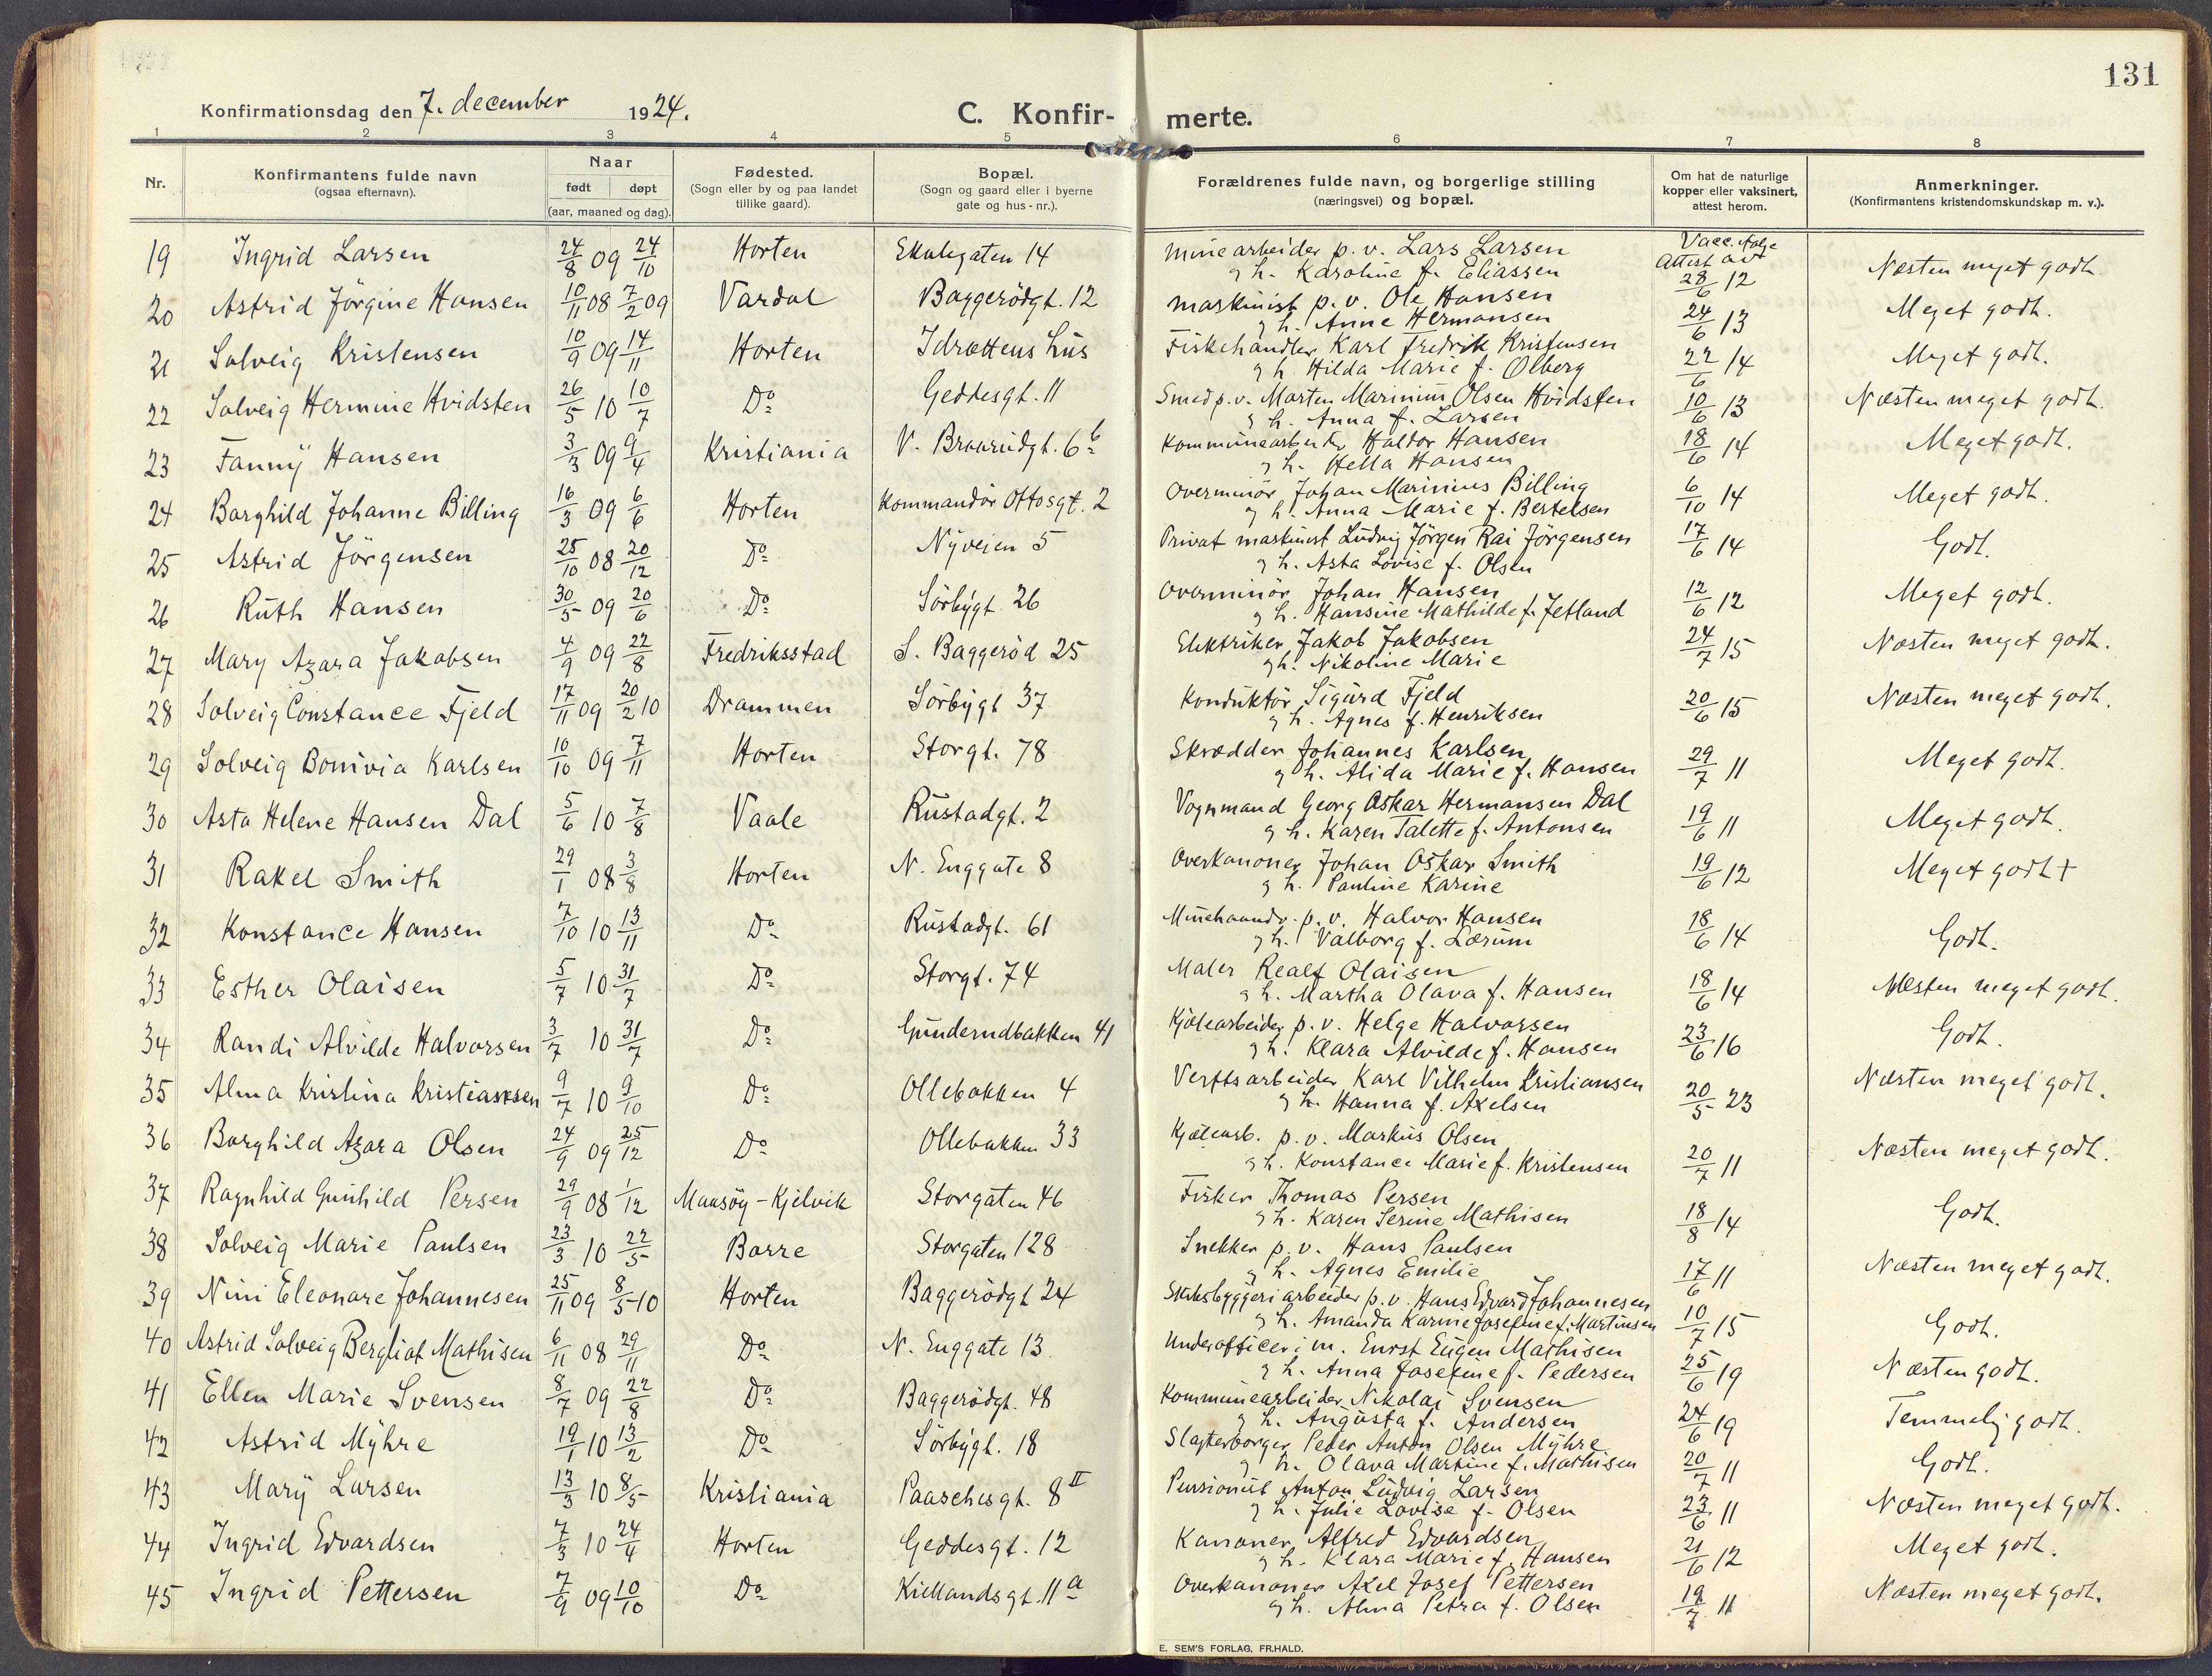 131
Konfirmationsdag den 7. december 1924.
C. Konfir- merte.
1 2 3 4 5 6 7 8
Nr.
Konfirmantens fulde navn
(ogsaa efternavn).
Naar
født døpt
(aar, maaned og dag).
Fødested.
(Sogn eller by og paa landet
tillike gaard).
Bopæl.
(Sogn og gaard eller i byerne
gate og hus-nr.).
Forældrenes fulde navn, og borgerlige stilling
(næringsvei) og bopæl.
Om hat de naturlige
kopper eller vaksinert,
attest herom.
Anmerkninger.
(Konfirmantens kristendomskundskap m. v.).
19 Ingrid Larsen 24/8 09 24/10 Horten Skolegaten 14 Minearbeider p. v. Lars Larsen Vacc. følge
g h. Karoline f. Eliassen Attest av 28/6 12 Næsten meget godt.
20 Astrid Jörgine Hansen 10/11 08 7/2 09 Vardal Baggerödgt. 12 Maskinist p. v. Ole Hansen
g h. Anne Hermansen 24/6 13 Meget godt.
21 Solveig Kristensen 10/9 09 14/11 Horten Idrættens hus Fiskehandler Karl Fredrik Kristensen
g h. Hilda Marie f. Olberg 22/6 14 Meget godt.
22 Solveig Hermine Hvidsten 26/5 10 10/7 Do Geddesgt. 11 Smed p. v. Morten Marinius Olsen Hvidsten
g h. Anna f. Larsen 10/6 13 Næsten meget godt.
23 Fanny Hansen 3/3 09 9/4 Kristiania V. Braarudgt. 6b Kommunearbeider Haldor Hansen
g h. Hella Hansen 18/6 14 Meget godt.
24 Borghild Johanne Billing 16/3 09 6/6 Horten Kommandör Ottosgt. 2 Overminör Johan Marinius Billing
g h. Anna Marie f. Bertelsen 6/10 14 Meget godt.
25 Astrid Jörgensen 25/10 08 20/12 Do Nyveien 5 Privat maskinist Ludvig Jörgen Rai Jörgensen
g h. Asta Lovise f. Olsen 17/6 14 Godt.
26 Ruth Hansen 30/5 09 20/6 Do Sörbygt 26 Overminör Johan Hansen
g h. Hansine Mathilde f. Jetland 12/6 12 Meget godt.
27 Mary Azora Jakobsen 4/9 09 22/8 Fredriksstad S. Baggeröd 25 Elektriker Jakob Jakobsen
g h. Nikoline Marie 24/7 15 Næsten meget godt.
28 Solveig Constance Fjeld 17/11 09 20/2 10 Drammen Sörbygt 37 Konduktör Sigurd Fjeld
g h. Agnes f. Henriksen 20/6 15 Næsten meget godt.
29 Solveig Bonivia Karlsen 10/10 09 7/11 Horten Storgt. 78 Skrædder Johannes Karlsen
g h. Alida Marie f. Hansen 29/7 11 Meget godt.
30 Asta Helene Hansen Dal 5/6 10 7/8 Vaale Rustadgt. 2 Vognmand Georg Oskar Hermansen Dal
g h. Karen Talette f. Antonsen 19/6 11 Meget godt.
31 Rakel Smith 29/1 08 3/8 Horten N. Enggate 8 Overkanoner Johan Oskar Smith
g h. Pauline Karine 19/6 12 Meget godt +
32 Konstance Hansen 7/10 10 13/11 Do Rustadgt. 61 Minehaandv. p. v. Halvor Hansen
g h. Valborg f. Lærum 18/6 14 Godt.
33 Esther Olaisen 5/7 10 31/7 Do Storgt. 74 Maler Realf Olaisen
g h. Martha Olava f. Hansen 18/6 14 Næsten meget godt.
34 Randi Alvilde Halvorsen 3/7 10 31/7 Do Gunderudbakken 41 Kjelearbeider p. v. Helge Halvorsen
g h. Klara Alvilde f. Hansen 23/6 16 Godt.
35 Alma Kristina Kristiansen 9/7 10 9/10 Do Ollebakken 4 Verftsarbeider Karl Vilhelm Kristiansen
g h. Hanna f. Axelsen 20/5 23 Næsten meget godt.
36 Borghild Azora Olsen 24/9 09 25/12 Do Ollebakken 33 Kjelearb. p. v. Markus Olsen
g h. Konstance Marie f. Kristensen 20/7 11 Næsten meget godt.
37 Ragnhild Gunhild Persen 29/9 08 1/12 Maasöy-Kjelvik Storgaten 46 Fisker Thomas Persen
g h. Karen Serine Mathisen 18/8 14 Godt.
38 Solveig Marie Paulsen 23/3 10 22/5 Borre Storgaten 128 Snekker p. v. Hans Paulsen
g h. Agnes Emilie 17/6 11 Næsten meget godt.
39 Nini Eleonore Johannesen 25/11 09 8/5 10 Horten Baggerödgt 24 Skibsbyggeriarbeider p. v. Hans Edvard Johannesen
g h. Amanda Karine Josefine f. Martinsen 10/7 15 Godt.
40 Astrid Solveig Bergliot Mathisen 6/11 08 29/11 Do N. Enggate 13 Underofficer i m. Ernst Eugen Mathisen
g h. Anna Josefine f. Pedersen 25/6 19 Næsten godt.
41 Ellen Marie Svensen 8/7 09 22/8 Do Baggerödgt. 48 Kommunearbeider Nikolai Svensen
g h. Augusta f. Andersen 24/6 19 Temmelig godt.
42 Astrid Myhre 19/1 10 13/2 Do Sörbygt. 18 Slagterborger Peder Anton Olsen Myhre
g h. Olava Martine f. Mathisen 20/7 11 Godt.
43 Mary Larsen 13/3 10 8/5 Kristiania Paaschesgt. 8 II Pensionist Anton Ludvig Larsen
g h. Julie Lovise f. Olsen 23/6 11 Næsten meget godt.
44 Ingrid Edvardsen 7/3 10 24/4 Horten Geddesgt. 12 Kanoner Alfred Edvardsen
g h. Klara Marie f. Hansen 21/6 12 Meget godt.
45 Ingrid Pettersen 7/9 09 10/10 Do Kiellandsgt. 11a Overkanoner Axel Josef Pettersen
g h. Alma Petra f. Olsen 19/7 11 Næsten meget godt.
E. SEM'S FORLAG, FR.HALD.